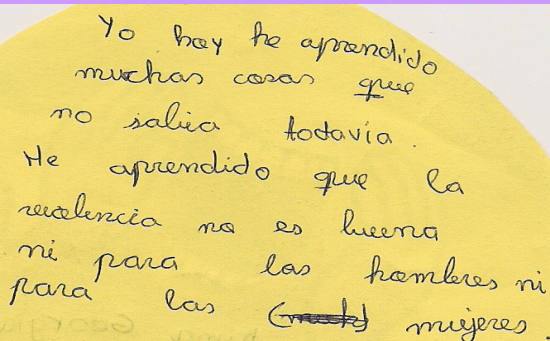 Yo hoy he aprendido
muchas cosas que
no sabia todavía.
He aprendido que la
violencia no es buena
ni para los hombres ni
para las mujeres.